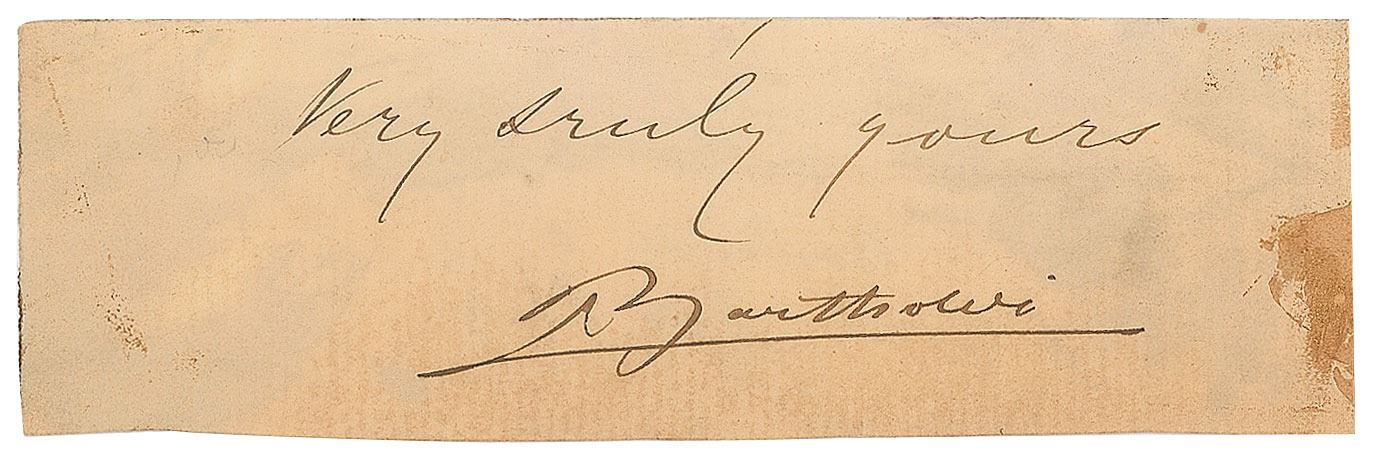 Very truly yours
Bartholdi